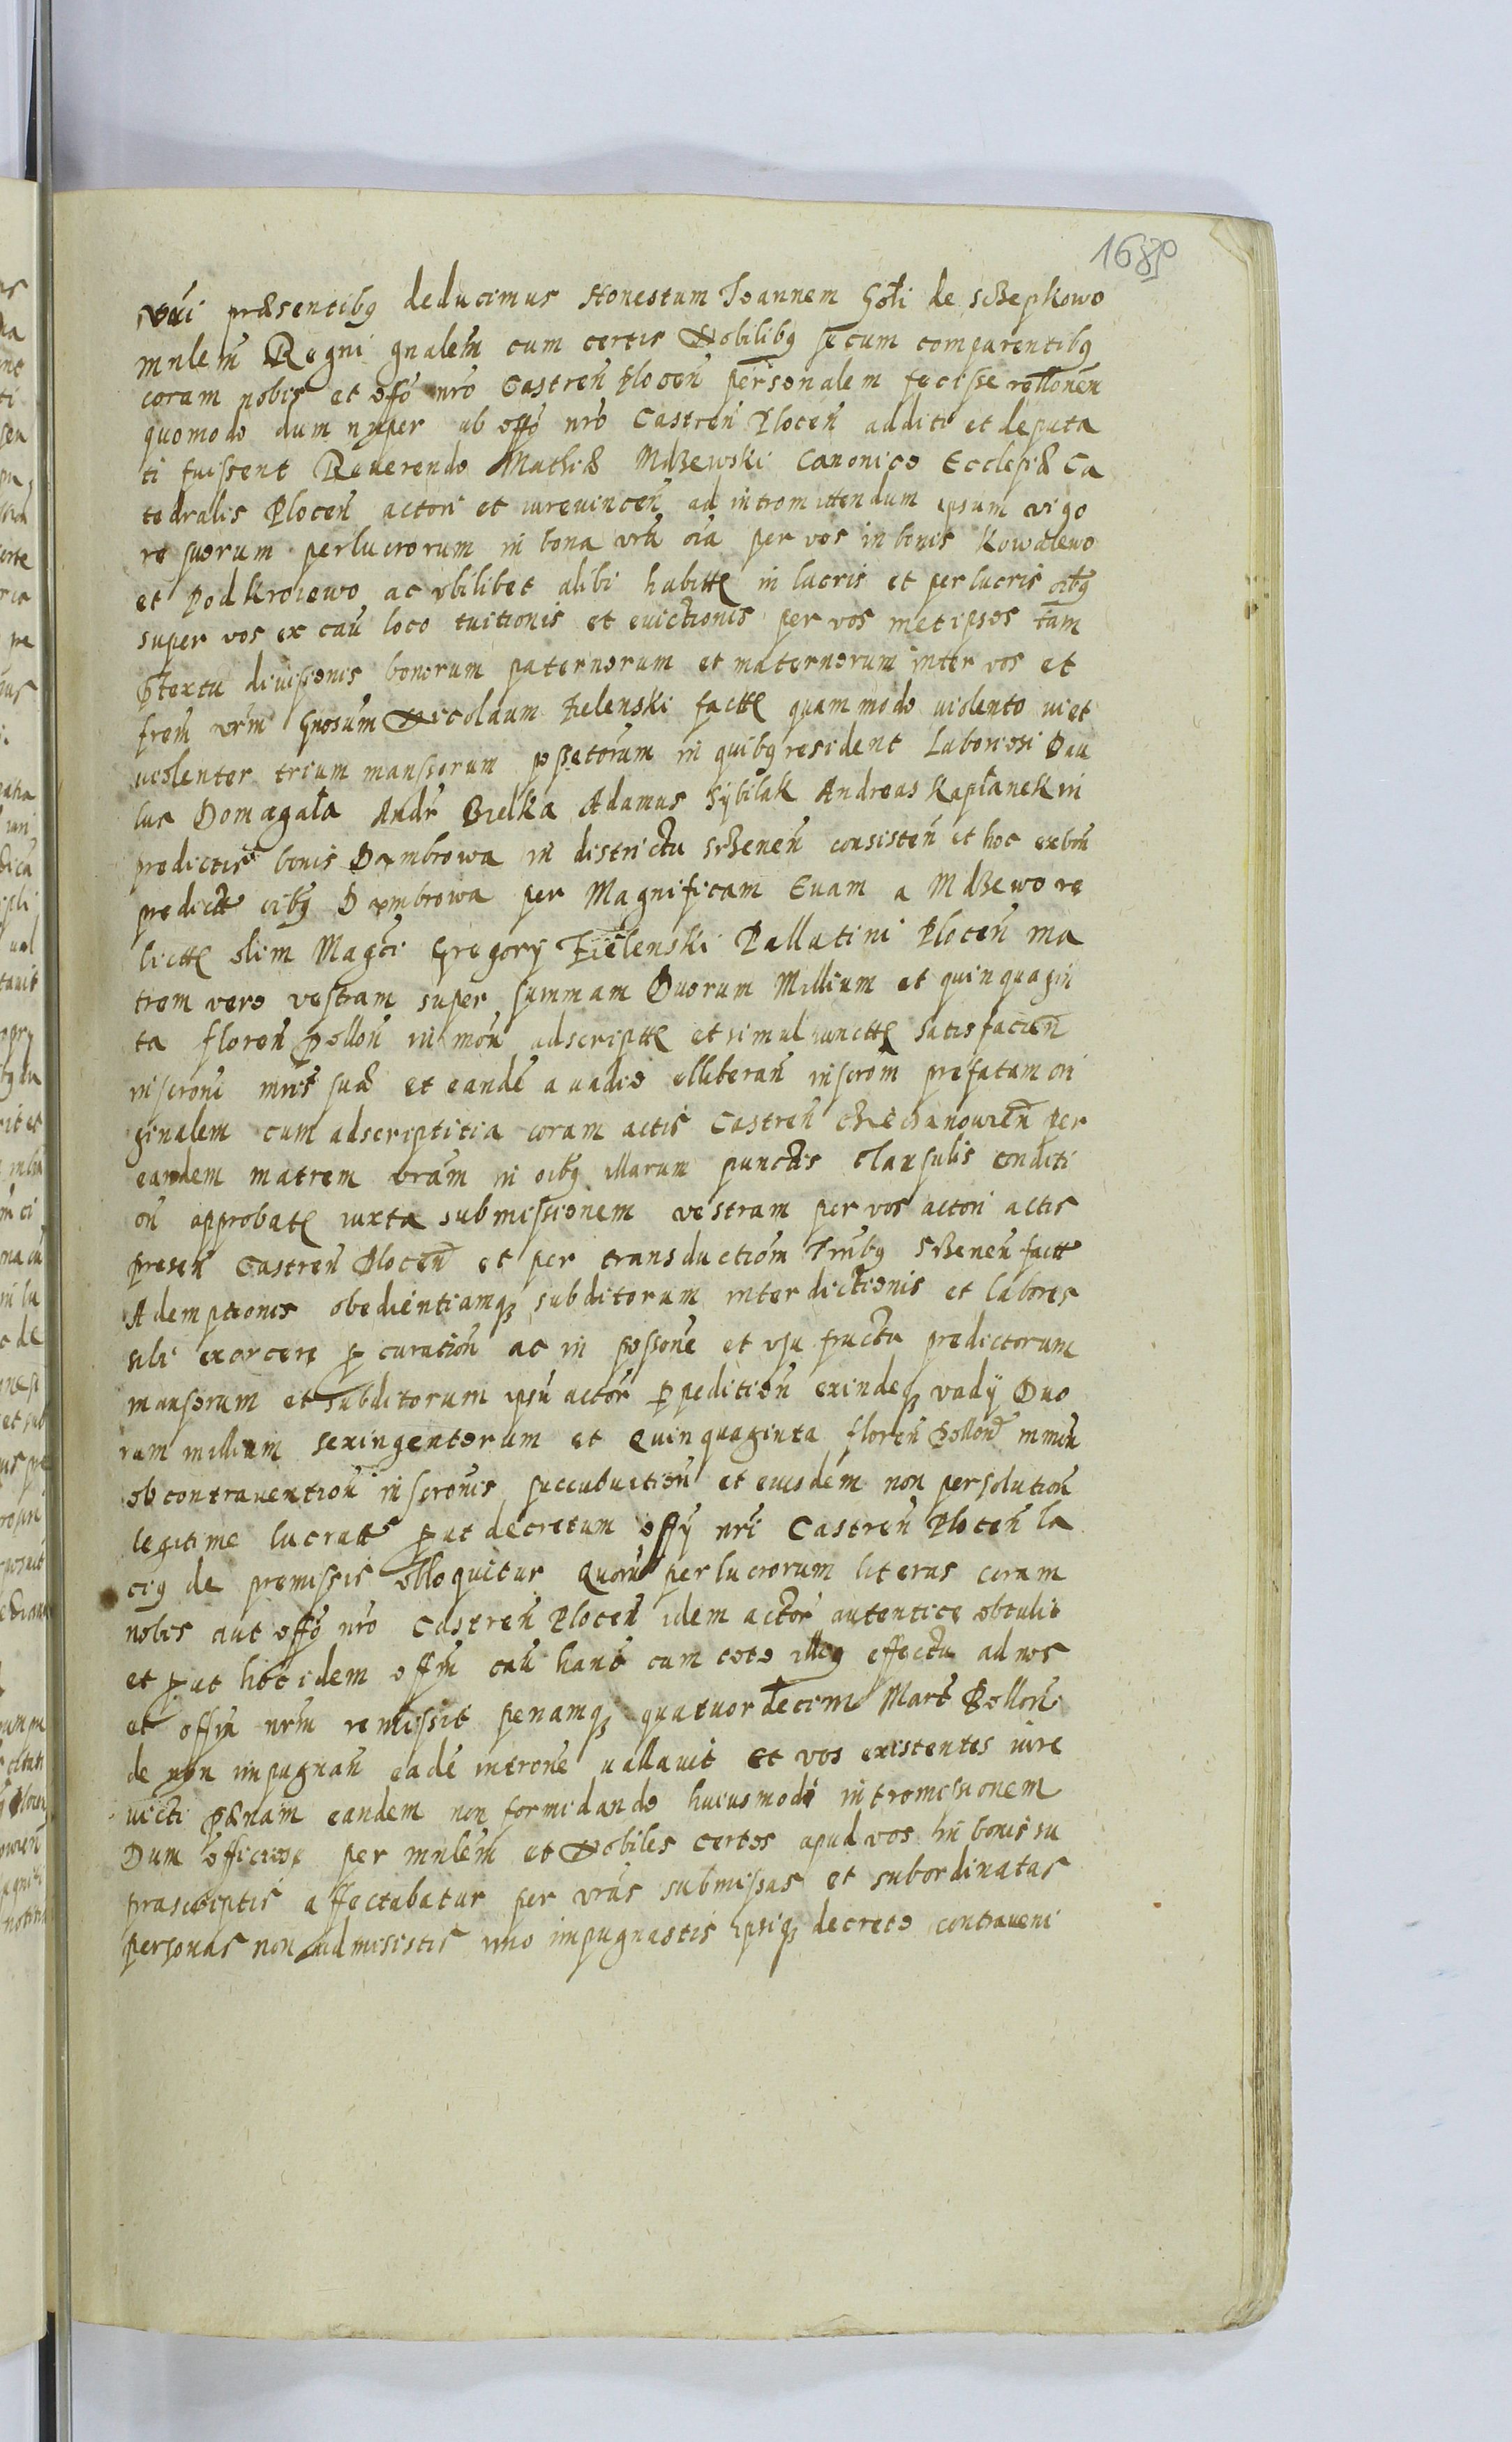 168
præsentibꝫ deducimus Honestum Joannem Goli de sczepkowo
mnlem̃ Regni gnalem̃ cum certis Nobilibꝫ secum comparentibꝫ
coram nobis et offo nr̃o Castren̄ Plocen̄ personalem fecisse rellonen
quomodo dum nuper ab offo nr̃o Castren̄ Plocen̄ additi et deputa
ti fuissent Reuerendo Mathiæ Mdzewski Canonico Ecclesiæ Ca
tedralis Plocen̄ actori et iureuincen̄ ad intromittendum ipsum vigo
re suorum perlucrorum in bona vr̃a oīa per vos in bonis Kowalewo
et Podkroiewo ac vbilibet alibi habitt in lucris et per lucris oībꝫ
super vos ex cau loco tuitionis et euictionis per vos metipsos tam
ꝑtextu diuisionis bonorum paternorum et maternorum inter vos et
frem̄ vr̃m Gnosum Nicolaum Zielenski factt quam modo uiolento ui et
uiolenter trium mansorum possetorum in quibꝫ resident Laboriosi Pau
lus Domagała Andr̄ Bielka Adamus Sybilak Andreas Kapłanek in
predictis bonis Dambrowa in districtu Srzenen̄ consisten̄ et hoc ex bon̄
predictt oibꝫ Dambrowa per Magnificam Euam a Mdzewo re
lictt olim Magci Gregorÿ Zielenski Pallatini Plocen̄ ma
trem vero vestram super summam Duorum Millium et quinquagin
ta floren̄ Pollon̄ in mon̄ adscriptt et simul iunctt satisfacien̄
inscroni mr̄is suæ et eandē a uadio elliberan̄ inscrom̄ prefatam ori
ginalem cum adscriptitia coram actis Castren̄ Cziechanouien̄ per
eandem matrem vr̃am in oībꝫ illarum punctis clausulis conditi
on̄ approbatt iuxta submissionem vestram per vos actori actis
presen̄ Castren̄ Plocen̄ et per transductiom̄ Trnībꝫ Srzenen̄ factt
Ademptionis obedientiamqꝫ subditorum interdictionis et labores
sibi exercere ꝓcuration̄ ac in possone et vsu fructu predictorum
mansorum et subditorum ipsū actor̄ ꝑpedition̄ exindeqꝫ vadÿ Duo
rum millium sexingentorum et Quinquaginta floren̄ Pollon̄ in mon̄
ob contrauention̄ inscronis succubuition̄ et eiusdem non persolution̄
legitime lucratt ꝓut decretum offÿ nr̃i Castren̄ Plocen̄ la
ciꝫ de premissis elloquitur Quorū perlucrorum literas coram
nobis aut offo nr̃o Castren̄ Plocen̄ idem actor autentice obtulit
et ꝓut hoc idem offm̄ cau hanc cum toto illiꝫ effectu ad nos
et offm̄ nr̃m remissit penamqꝫ quatuordecim Marc Pollon̄
de non impugnan̄ eadē introne uallauit et vos existentes iure
uicti pænam eandem non formidando huiusmodi intromissionem
Dum officiose per mnlem̄ et Nobiles certos apud vos in bonis su
prascriptis affectabatur per vr̃as submissas et subordinatas
personas non admisistis imo impugnastis ipsiqꝫ decreto contraueni